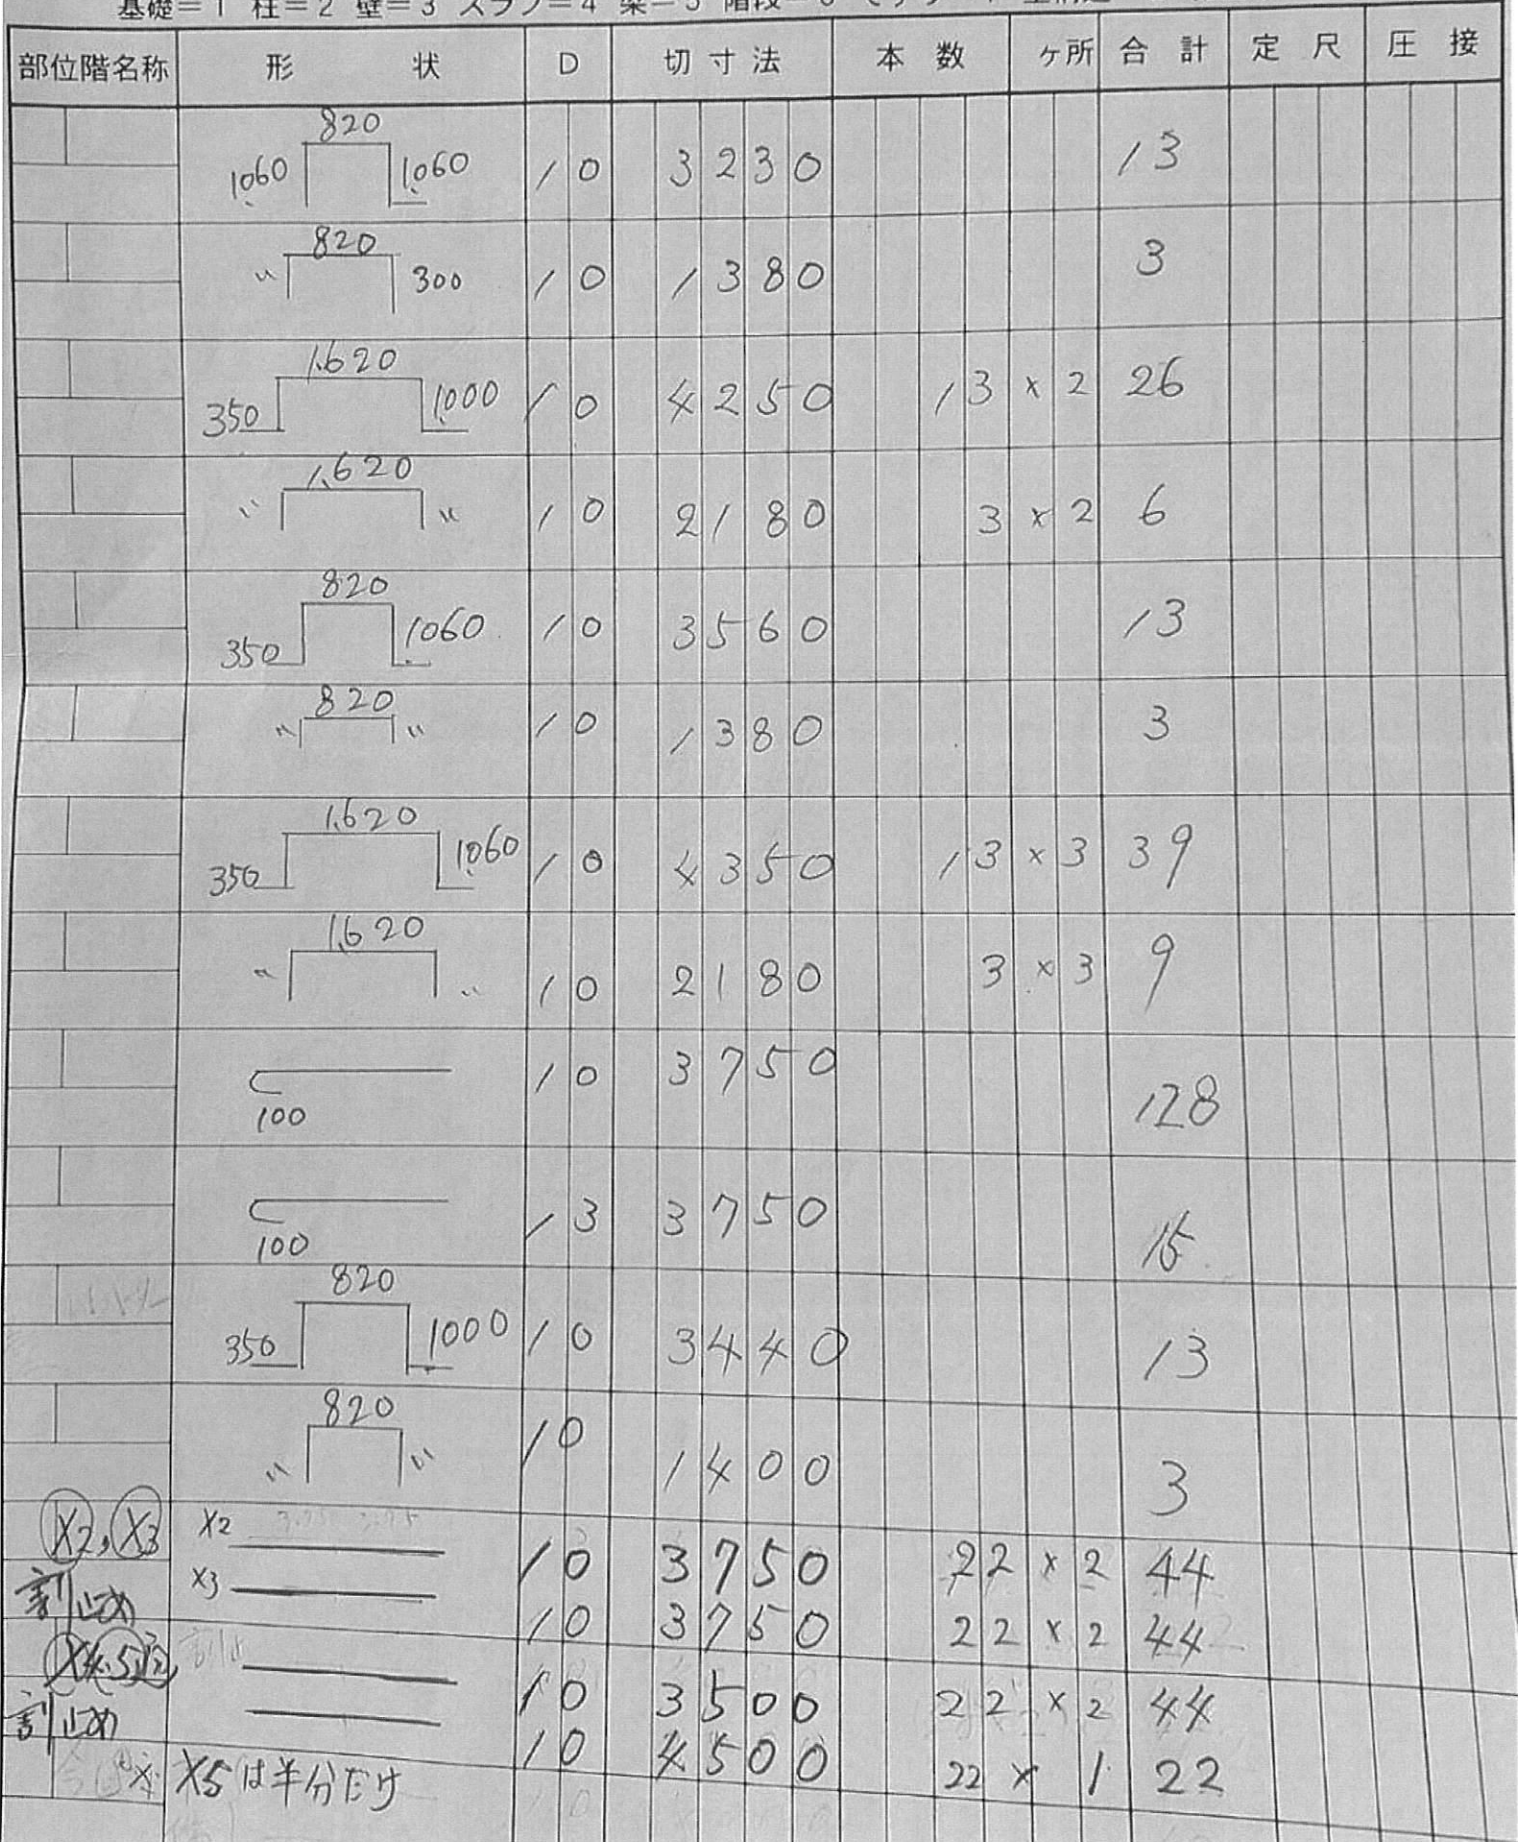 基礎＝1 柱＝2 壁＝3 スラブ＝4 梁＝5 階段＝6
部位階名称 形状 D 切寸法 本数 ヶ所 合計 定尺 圧接
820
1060 1060 10 3230 13
820
〃 300 10 1380 3
1,620
350 1,000 10 4250 13 × 2 26
1,620
〃 〃 10 2180 3 × 2 6
820
350 1060 10 3560 13
820
〃 〃 10 1380 3
1,620
350 1,060 10 4350 13 × 3 39
1,620
〃 〃 10 2180 3 × 3 9
10 3750 128
100
13 3750 15
100
820
350 1000 10 3440 13
820
〃 〃 10 1400 3
X2, X3 X2 10 3750 22 × 2 44
割止め X3 10 3750 22 × 2 44
X4.5 10 3500 22 × 2 44
割止め 10 4500 22 × 1 22
X5は半分だけ